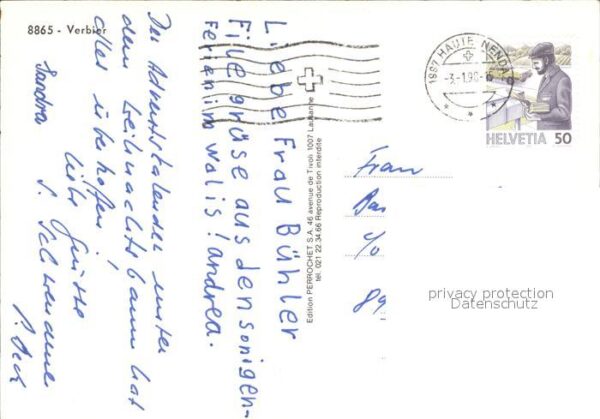 8865 - Verbier
1997 HAUTE-NENDAZ
-3.-1.90.-
HELVETIA 50
Liebe Frau Bühler
File grüse aus den sonigen-
Ferien im walis! andrea.
Der Adventskalender unter
dem Weihnachtsbaum hat
alles übertroffen!
liebi Grüsse
Sandra
S.
Edition PERROCHET S.A. 46 avenue de Tivoli 1007 Lausanne
tel. 021 22.34.66 Reproduction interdite
Frau
Bar
%
89
privacy protection
Datenschutz